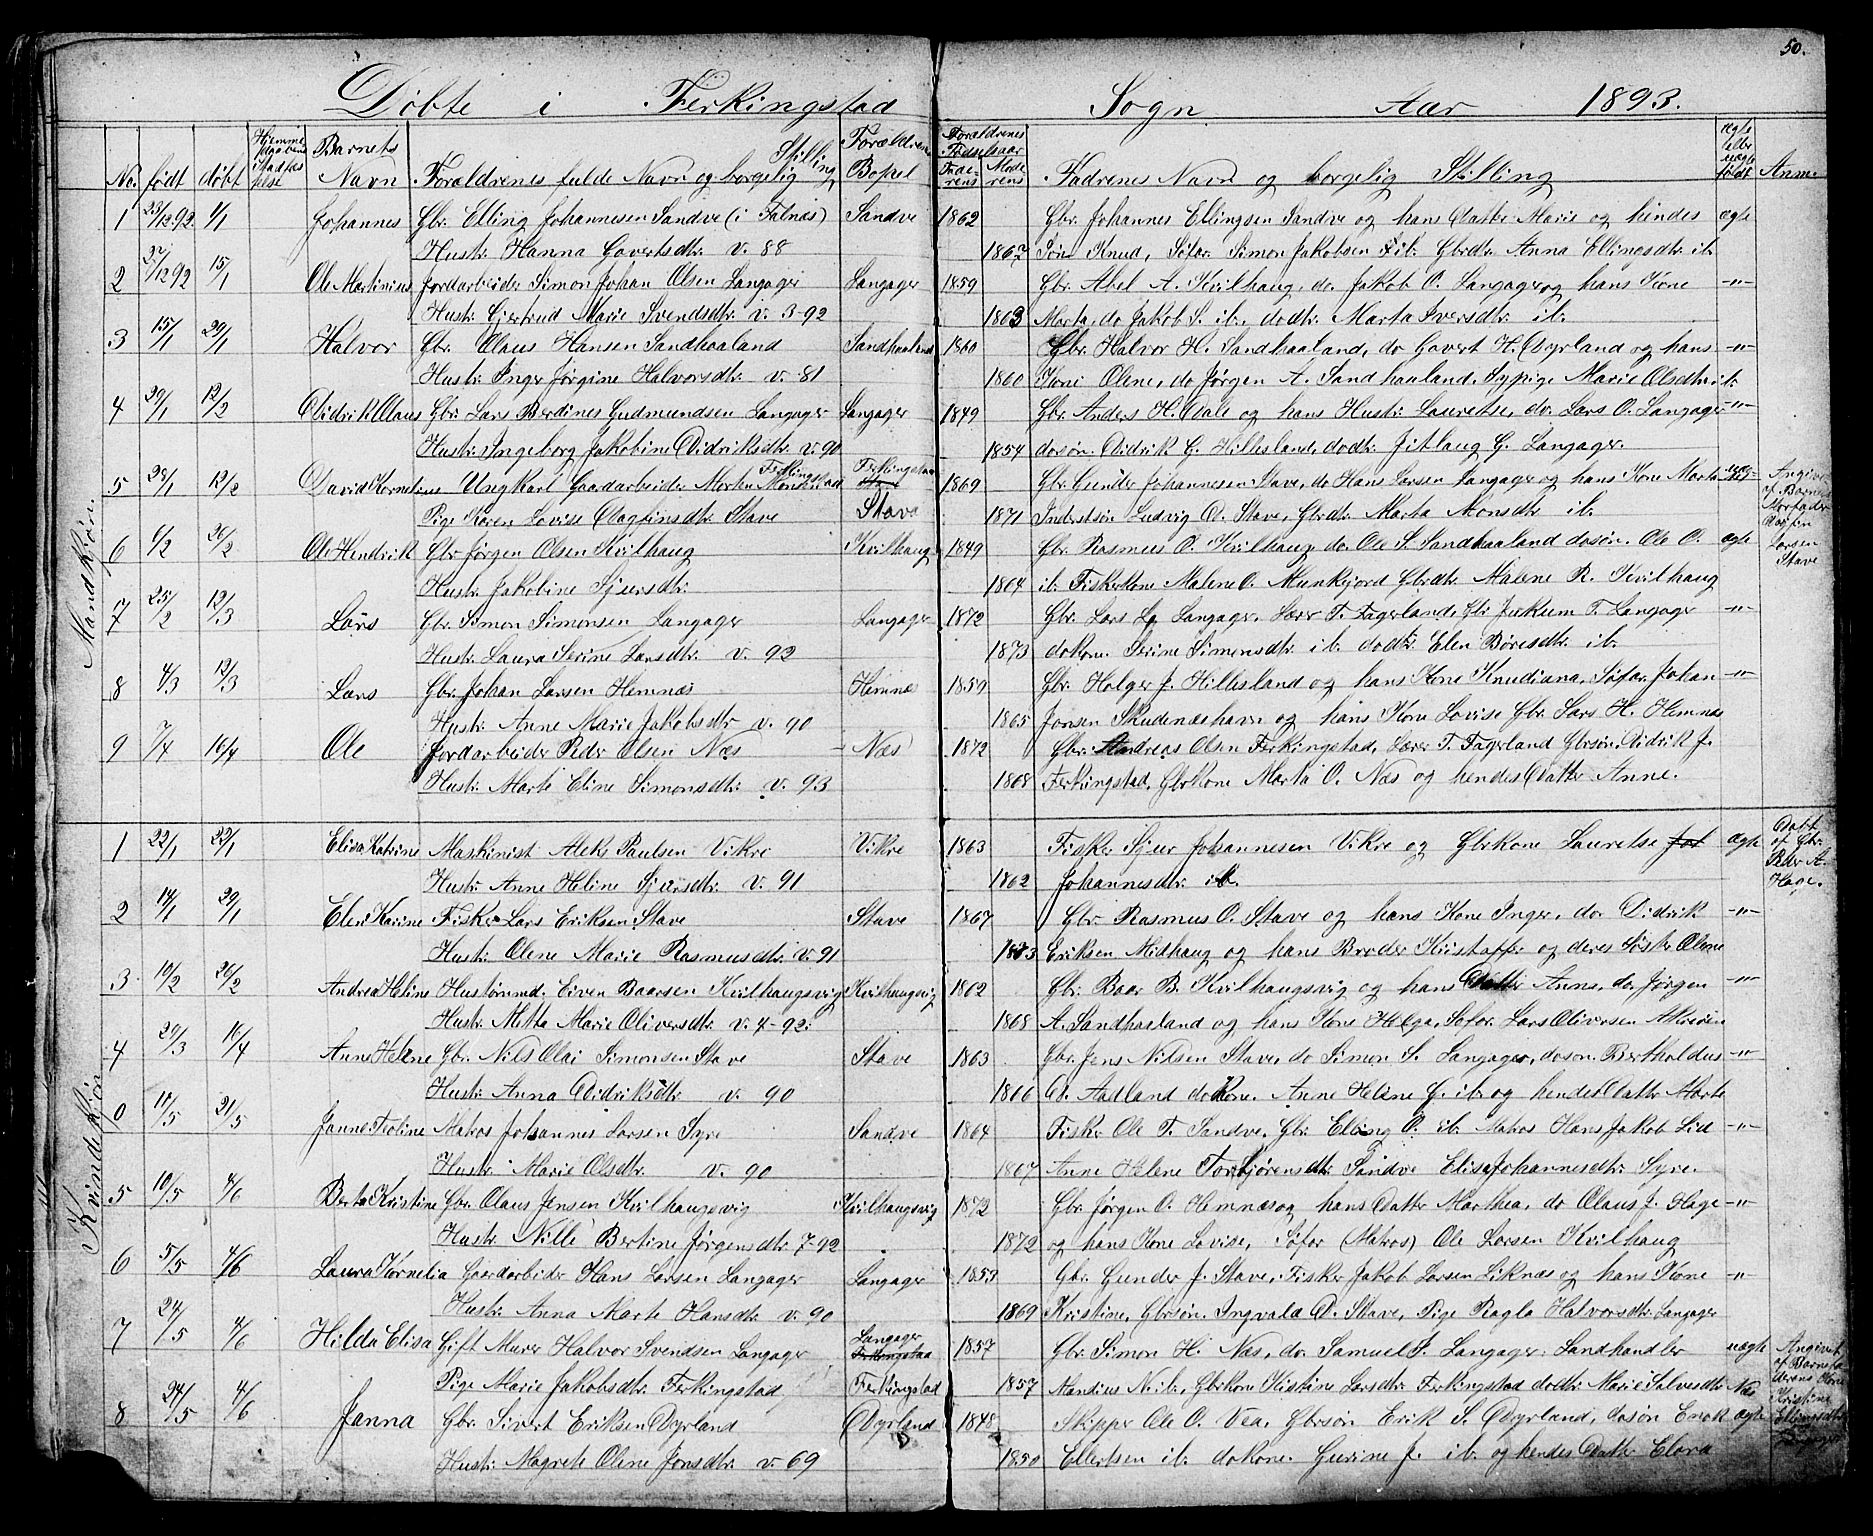 50.
Døbte i Ferkingstad Sogn Aar 1893.
No. født døbt Hjemmedaabens Stadfæstelse Barnets Navn Forældrenes fulde Navn og borgelig Stilling Forældrenes Bopel Forældrenes Fødselsaar Faderens Moderens Fadrenes Navn og borgelig Stilling ægte eller uægte født Anm.
Mandkjøn.
1 23/12 92. 1/1 Johannes Gbr. Elling Johannesen Sandve (i Falnæs) Sandve 1862 Gbr. Johannes Ellingsen Sandve og hans Datter Marie og hindes ægte
Hustr. Hanna Govertsdtr. v. 88 1867 Søn Knud, Søfar. Simon Jakobsen ib. Gbrdtr. Anna Ellingsdtr. ib.
2 /12 92 15/1 Ole Martinius Jordarbeider Simon Johan Olsen Langager Langager 1859 Gbr. Abel A. Kvilhaug, do Jakob O. Langager og hans Kone -"-
Hustr. Gjertrud Marie Svendsdtr. v. 3-92 1863 Marta, do Jakob S. ib., dodtr. Marta Iversdtr. ib.
3 15/1 29/1 Halvor Gbr. Olaus Hansen Sandhaaland Sandhaaland 1860 Gbr. Halvor H. Sandhaaland, do Govert H. Dyrland og hans -"-
Hustr. Inger Jørgine Halvorsdtr. v. 81 1860 Kone Olene, do Jørgen A. Sandhaaland, Sypige Marie Olsdtr. ib.
4 29/1 12/2 Didrik Olaus Gbr. Lars Berdines Gudmundsen Langager Langager 1849 Gbr. Anders H. Dale og hans Hustr. Lauretse, do. Lars O. Langager -"-
Hustr. Ingeborg Jakobine Didriksdtr. v. 90 1854 dosøn. Didrik G. Hillesland, dodtr. Jitlaug G. Langager.
5 28/1 12/2 David Kornelius Ungkarl Gaardarbeider Morten Monsen Ferkingstad Ferkingstad 1869 Gbr. Gunder Johannesen Stave, do Hans Larsen Langager og hans Kone Marta uæg-
Pige Karen Lovise Dagfinsdtr. Stave Stava 1871 Inderstsøn Ludvig D. Stave, Gbrdtr. Marta Monsdtr. ib.
Angivet af Barnets Morfader Dagfin Larsen Stave
6 1/2 26/2 Ole Hendrik Gbr. Jørgen Olsen Kvilhaug Kvilhaug 1849 Gbr. Rasmus O. Kvilhaug do. Ole S. Sandhaaland dosøn. Ole O. ægte
Hustr. Jakobine Sjursdtr. 1864 ib. Fiskerkone Malene O. Munkejord Gbrdtr. Malene R. Kvilhaug
7 25/2 12/3 Lars Gbr. Simon Simonsen Langager Langager 1872 Gbr. Lars L. Langager, Lærer T. Fagerland, Gbr. T. Langager -"-
Hustr. Laura Serine Larsdtr. v. 92 1873 dokone. Serine Simonsdtr. ib. dodtr. Elen Børesdtr. ib.
8 4/3 12/3 Lars Gbr. Johan Larsen Hemnæs Hemnæs 1859 Gbr. Holger J. Hillesland og hans Kone Knudiana, Søfar. Johan -"-
Hustr. Anne Marie Jakobsdtr. v. 90 1865 Jonsen Skudenæshavn og hans Kone Lovise Gbr. Lars H. Hemnæs
9 7/4 16/4 Ole Jordarbeider Peder Olsen Næs Næs 1872 Gbr. Andreas Olsen Ferkingstad, Lærer T. Fagerland Gbrsøn. Didrik J.
Hustr. Marte Eline Simonsdtr. v. 93 1868 Ferkingstad, Gbrkone Marta O. Næs og hendes Datter Anne.
Kvindekjøn
1 22/1 22/1 Elisa Katrine Maskinist Aleks Paulsen Vikre Vikre 1863 Fisker Sjur Johannesen Vikre og Gbrkone Lauretse Jol ægte
Hustr. Anne Heline Sjursdtr. v. 91 1862 Johannesdtr. ib.
Døbt af Gbr. Peter A. Hage.
2 14/1 29/1 Elen Karine Fisker Lars Eriksen Stave Stave 1867 Gbr. Rasmus O. Stave og hans Kone Inger, do. Didrik -"-
Hustr. Olene Marie Rasmusdtr. v. 91 1873 Eriksen Midhaug og hans Broder Kristoffer og deres Søster Olene
3 10/2 26/2 Andrea Heline Hustømmd. Eiven Baarsen Kvilhaugsvig Kvilhaugsvig 1862 Gbr. Baar B. Kvilhaugsvig og hans Datter Anne, do. Jørgen -"-
Hustr. Metta Marie Oliversdtr. v. 4-92. 1868 A. Sandhaaland og hans Kone Helga, Søfar. Lars Oliversen
4 29/3 16/4 Anne Helene Gbr. Nils Olai Simonsen Stave Stave 1863 Gbr. Jens Nilsen Stave, do Simon S. Langager, dosøn. Bertholdus -"-
Hustr. Anna Didriksdtr. v. 90 1866 Aadland dokone. Anne Helene G. ib. og hendes Datter Marte
0 11/5 21/5 Janne Teoline Matros Johannes Larsen Syre Sandve 1864 Fisker Ole T. Sandve, Gbr. Elling O. ib. Matros Hans Jakob Lid -"-
Hustr. Marie Olsdtr. v. 90 1867 Anne Helene Torbjørensdtr. Sandve Elisa Johannesdtr. Syre.
5 10/5 4/6 Berta Kristine Gbr. Olaus Jensen Kvilhaugsvig Kvilhaugsvig 1872 Gbr. Jørgen O. Hemnæs og hans Datter Marthea, do Olaus J. Hage -"-
Hustr. Nille Bertine Jørgensdtr. 7-92 1872 og hans Kone Lovise, Søfar (Matros) Ole Larsen Kvilhaug
6 5/5 4/6 Laura Kornelia Gaardarbeider Hans Larsen Langager Langager 1859 Gbr. Gunder J. Stave, Fisker Jakob Larsen Liknæs og hans Kone -"-
Hustr. Anna Marte Hansdtr. v. 90 1869 Kristine, Gbrsøn. Ingvald D. Stave, Pige Ragla Halvorsdtr. Langager
7 24/5 4/6 Hilda Elisa Gift Murer Halvor Svendsen Langager Langager Ferkingstad 1857 Gbr. Simon H. Næs, do. Samuel S. Langager. Landhandler uægte
Pige Marie Jakobsdtr. Ferkingstad Ferkingstad 1857 Mandius N. ib., Gbrkone Kistine Larsdtr. Ferkingstad dodtr. Marie Salvesdtr. Næs
Angivet af Barnefaderens Kone Kristine Ellingsdtr. Langager
8 24/5 4/6 Janna Gbr. Sivert Eriksen Dyrland Dyrland 1848 Skipper Ole O. Vea, Gbrsøn Erik S. Dyrland, dosøn Enok ægte
Hustr. Magrete Oline Jonsdtr. v. 69 1850 Ellertsen ib. dokone. Gurine J. ib. og hendes Datter Elora